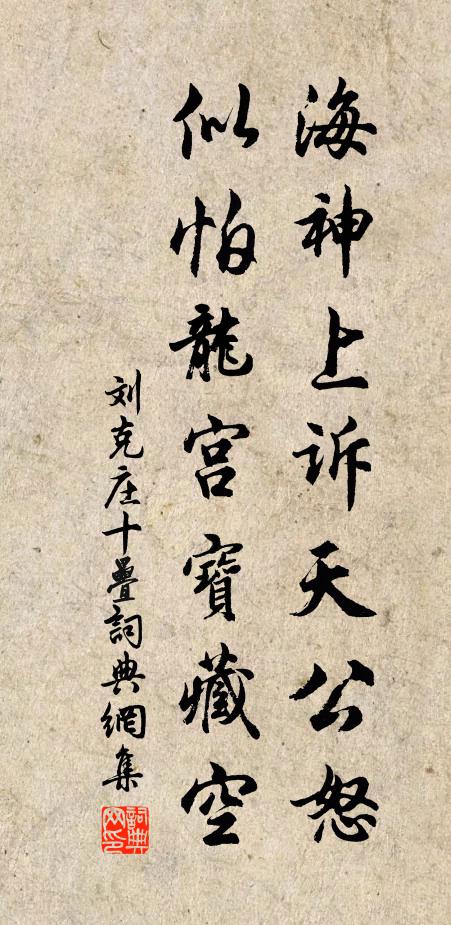 海神上訴天公怒
似怕龍宮寶藏空
刘克庄十疊詞典網集
詞典网印